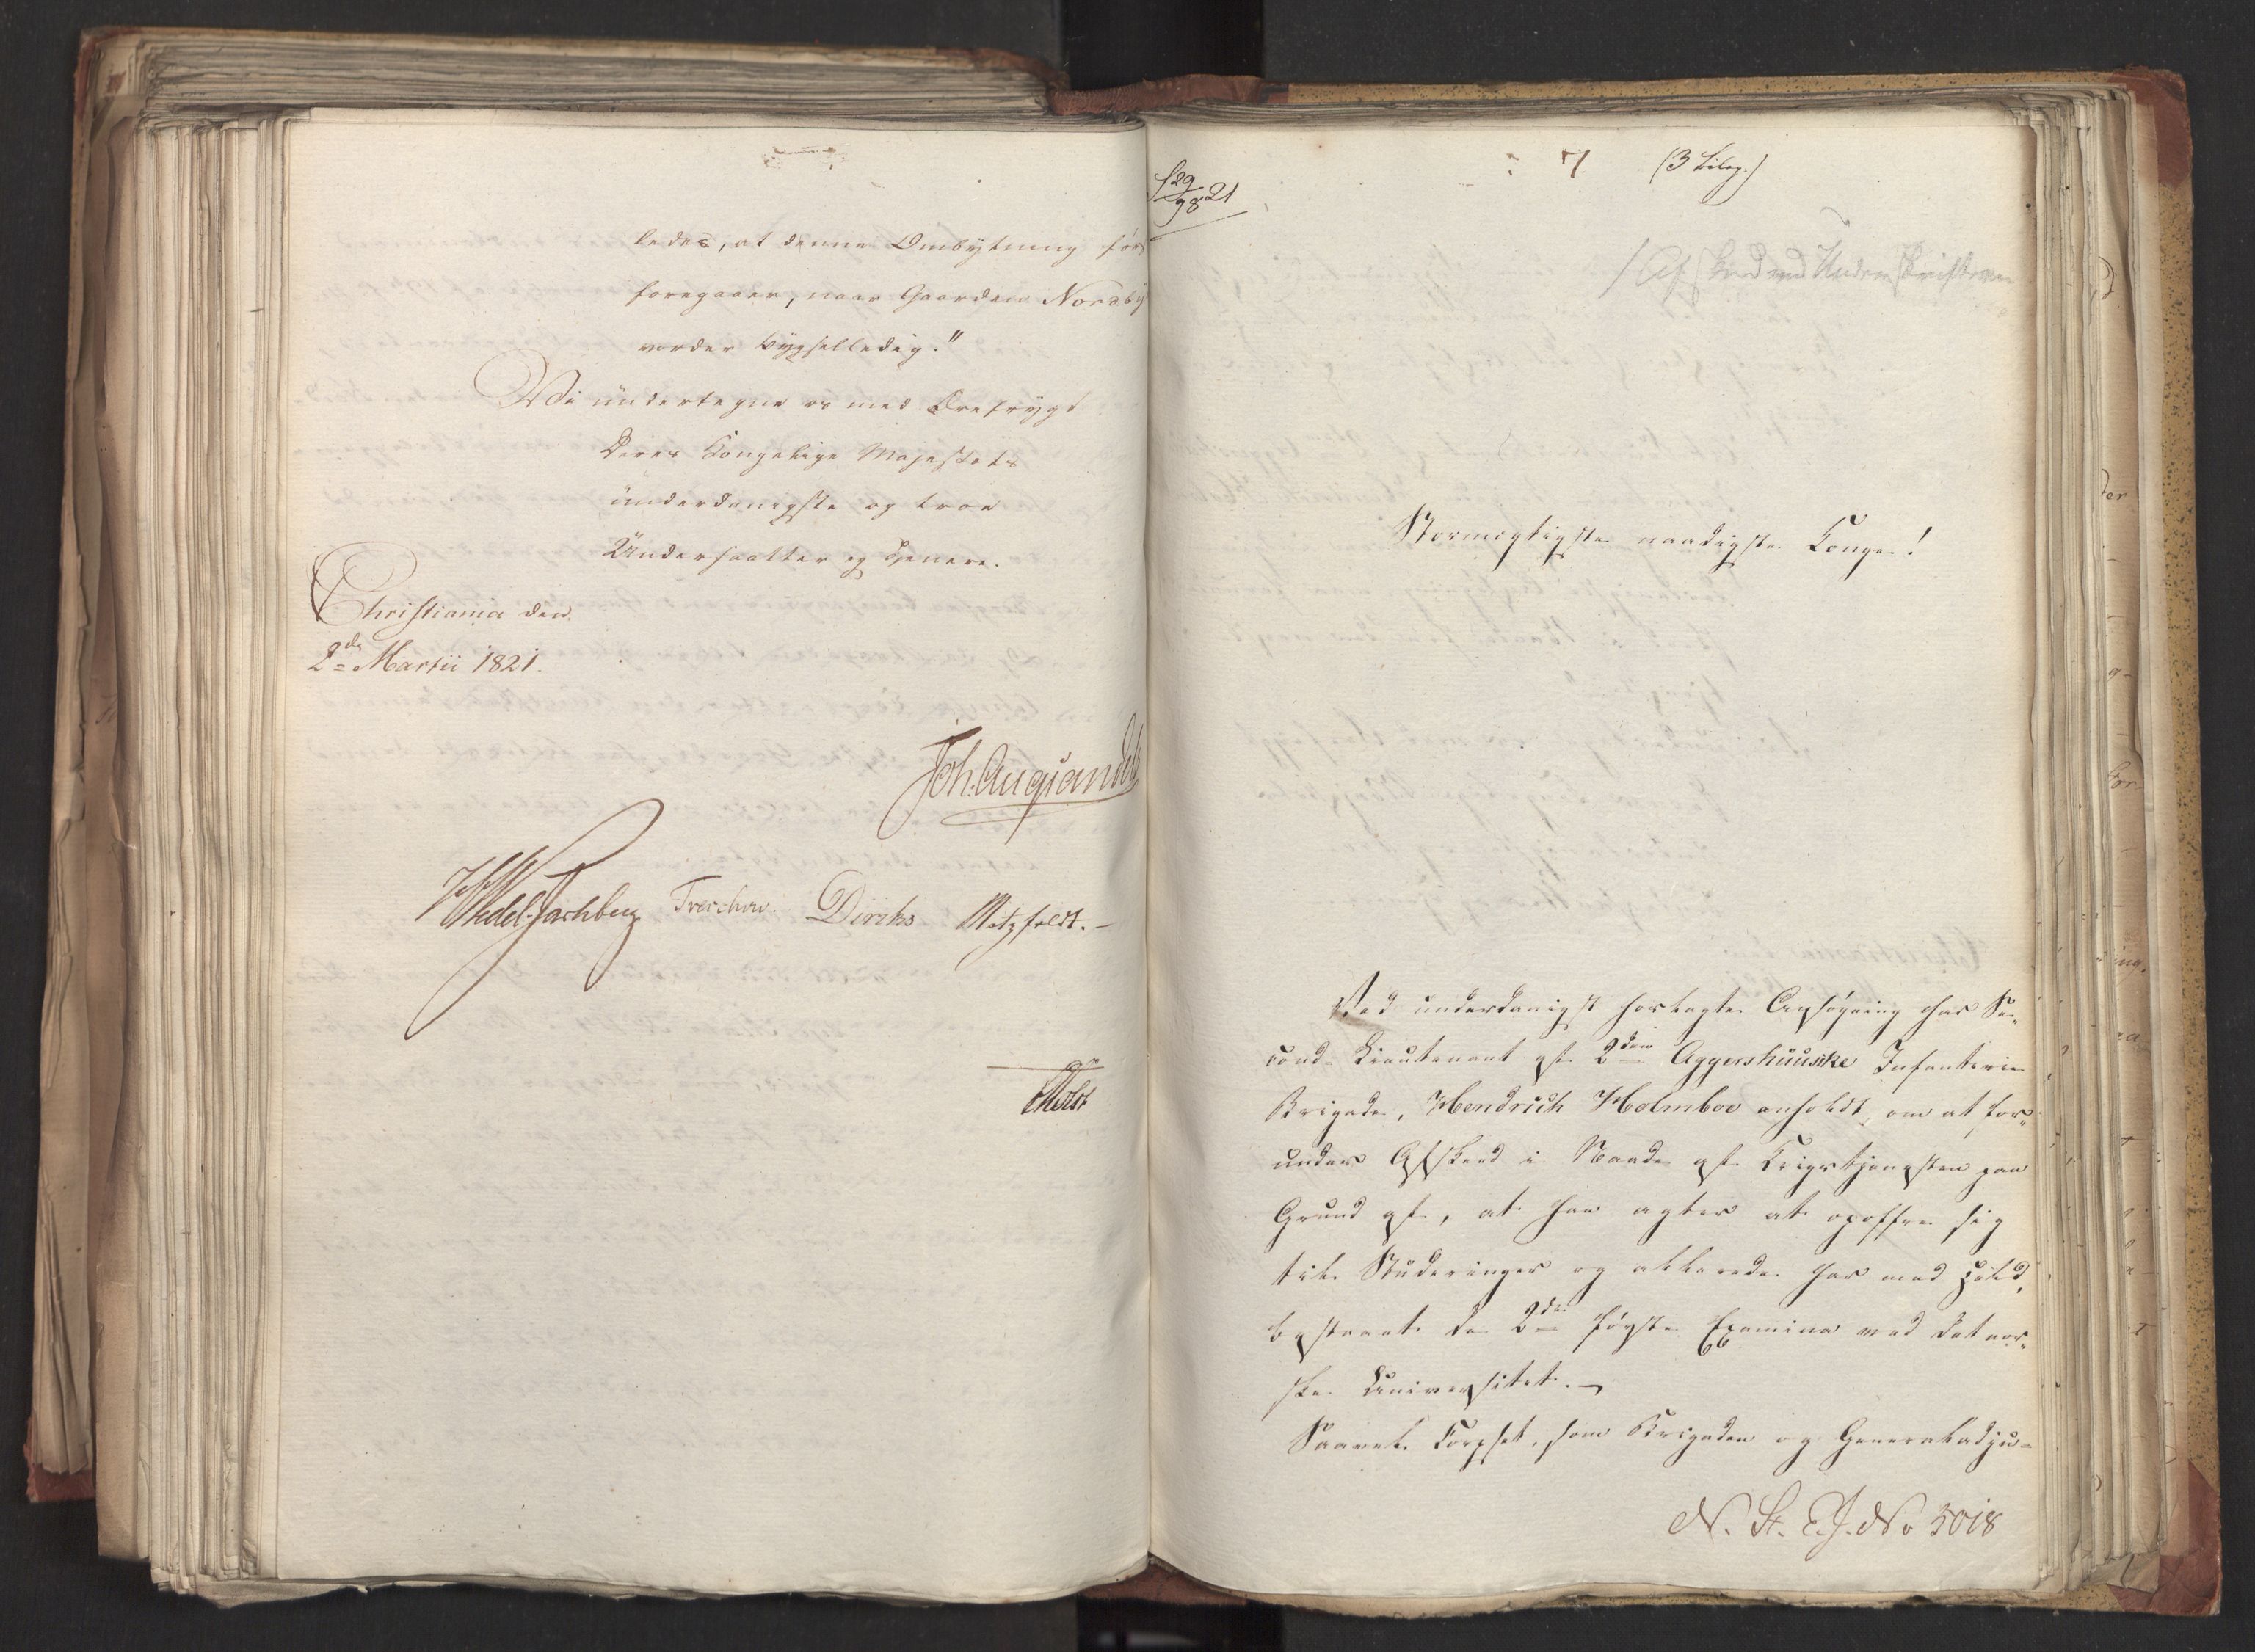 ledes, at denne Ombytning før
foregaaer, naar Gaarden Nordby
vorder bygselledig."
Vi undertegne os med Ærefrygt
Deres Kongelige Majestets
underdanigste og troe
Undersaatter og Tjenere.
Christiania den
2de Martii 1821.
Joh. Aug: Sandels
HWedel-Jarlsberg Treschow. Diriks Motzfeldt.
Holst
29/9 8 21
7 (3 Bilag.)
/Afsked med Underskriften
Stormægtigste naadigste Konge!
Ved underdanigst forlagte Ansøgning har Se-
cond-Lieutenant af 2den Aggershuuske Infanterie
Brigade, Hendrich Holmboe anholdt om at for-
undes Afskeed i Naade af Krigstjenesten paa
Grund af, at han agter at opoffre sig
til Studeringer og allerede har med Held
bestaaet de 2de første Examina ved det nor-
ske Universitet. –
Saavel Corpset, som Brigaden og Generaladju-
N. St. E. J. No 5018